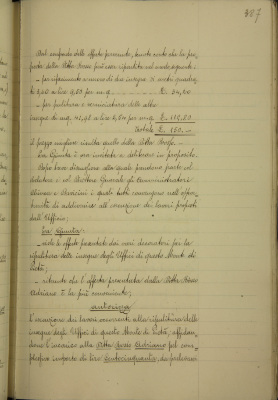 307
Dal confronto delle offerte pervenute, tenuto conto che la pro-
posta della Ditta Bosio può essere ripartita nel modo seguente:
– per rifacimento a nuovo di due insegne di metri quadra-
ti 3,60 a lire 9,50 per mq. £ 34,20
– per pulitura e verniciatura delle altre
insegne di mq. a lire per mq. £
Totale £ 150.–
il prezzo migliore risulta quello della Ditta Bosio.–
La Giunta è ora invitata a deliberare in proposito.
Dopo breve discussione alla quale prendono parte col
relatore e col Direttore Generale gli Amministratori
e i quali tutti convengono nell'oppor-
tunità di addivenire all'esecuzione dei lavori proposti
dall'Ufficio;
La Giunta
– viste le offerte presentate da vari decoratori per la
ripulitura delle insegne degli Uffici di questo Monte di
Pietà;
– ritenuto che l'offerta presentata dalla Ditta Bosio
Adriano è la più conveniente;
autorizza
l'esecuzione dei lavori occorrenti alla ripulitura delle
insegne degli Uffici di questo Monte di Pietà, affidan-
done l'incarico alla Ditta Bosio Adriano pel com-
plessivo importo di lire centocinquanta, da prelevarsi